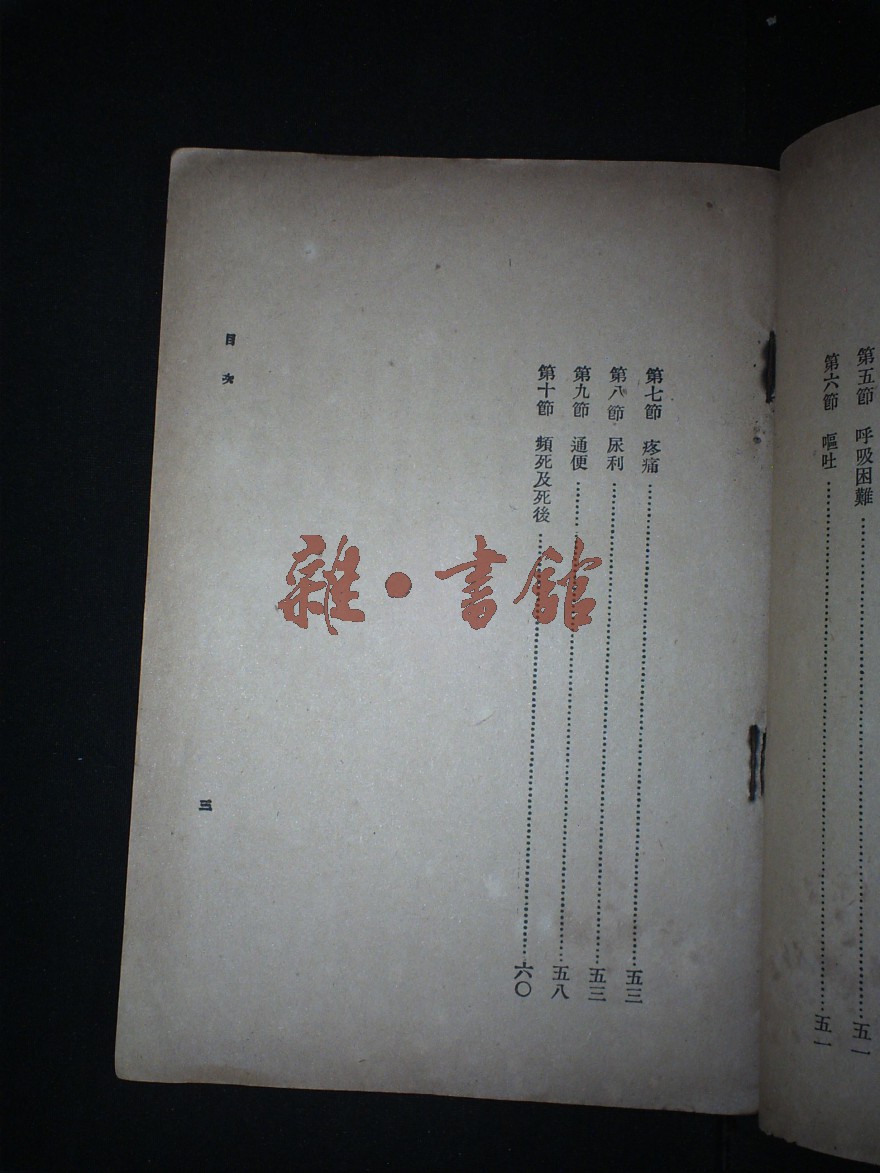 第五節　呼吸困難……五一
第六節　嘔吐……五一
第七節　疼痛……五三
第八節　尿利……五三
第九節　通便……五八
第十節　頻死及死後……六〇
目次
三
雜·書館